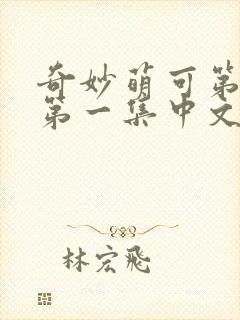 奇妙萌可第
第一集中文
林宏飛